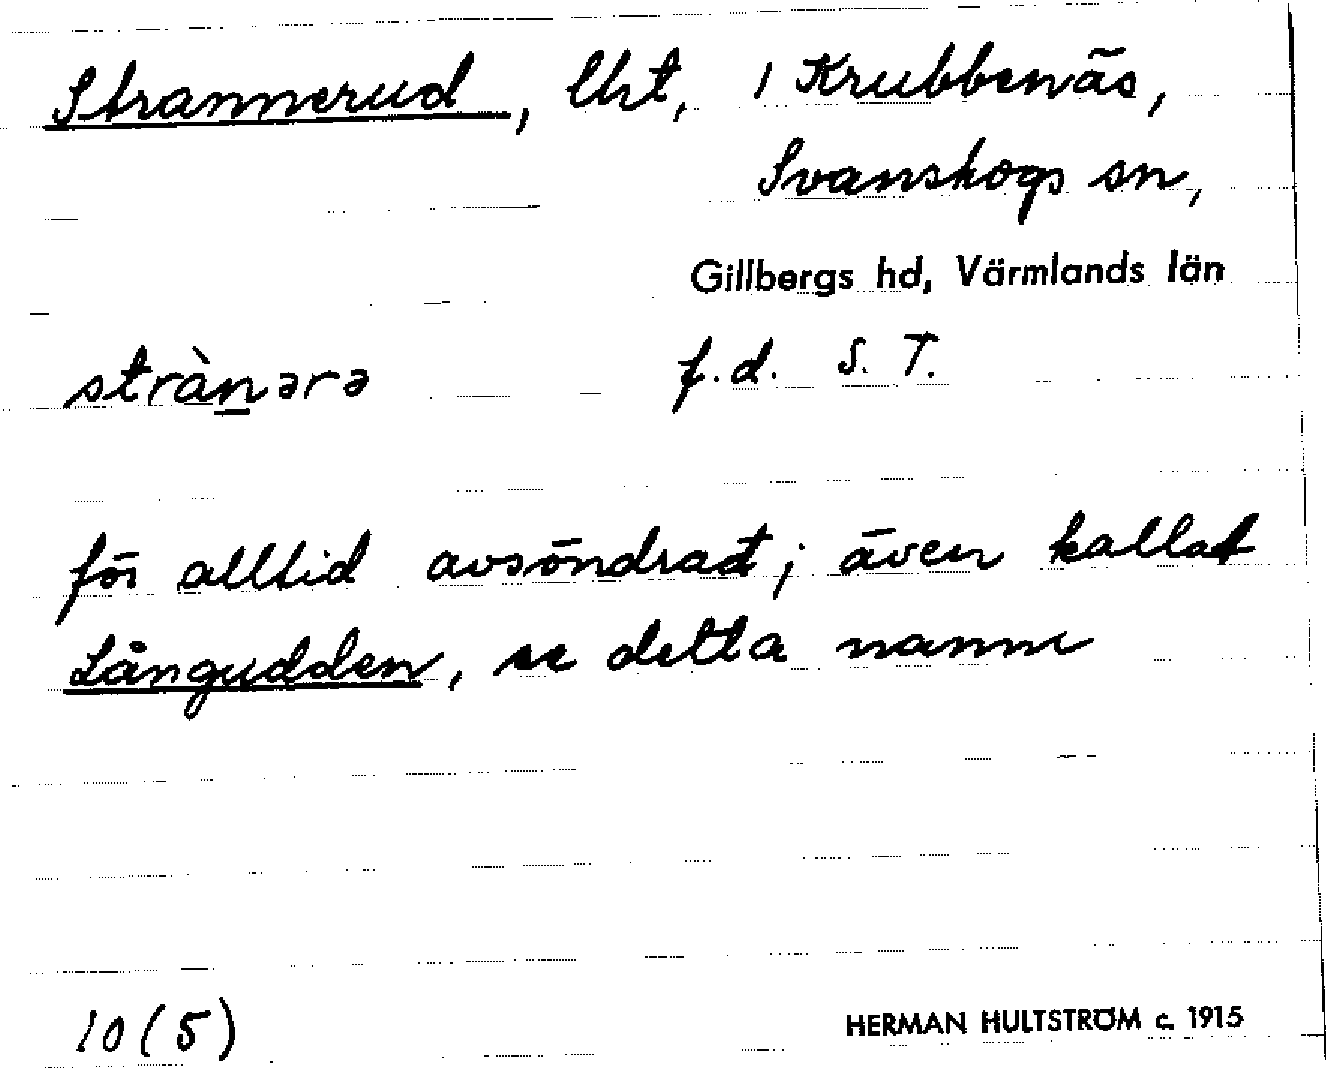 Strannerud, lht, i Krubbenäs,
Svanskogs sn,
Gillbergs hd, Värmlands län
stràn̲ərə f.d. S. T.
för alltid avsöndrat; även kallat
Långudden, se detta namn
10 (5) HERMAN HULTSTRÖM c. 1915